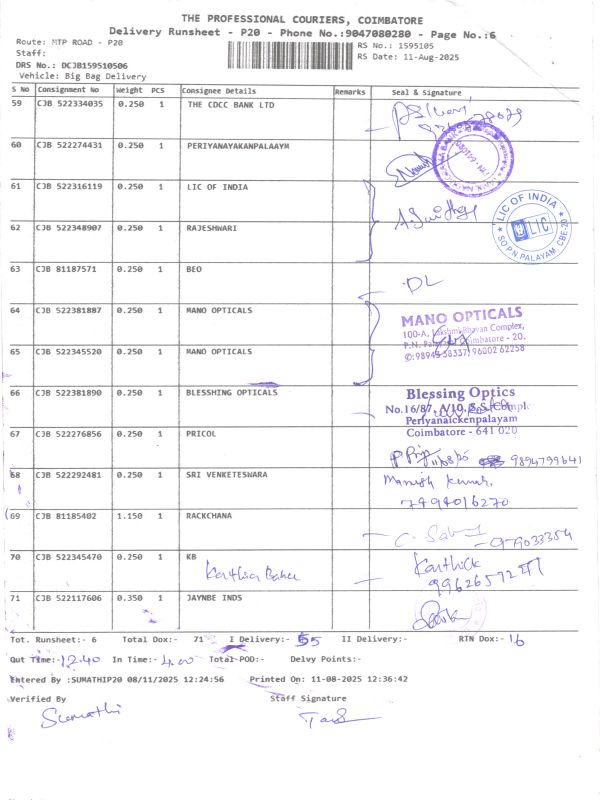 THE PROFESSIONAL COURIERS, COIMBATORE
Delivery Runsheet - P20 - Phone No.:9047080280 - Page No.:6
Route: MTP ROAD - P20
RS No.: 1595105
Staff:
RS Date: 11-Aug-2025
DRS No.: DCJB159510506
Vehicle: Big Bag Delivery
S No Consignment No Weight PCS Consignee Details Remarks Seal & Signature
59 CJB 522334035 0.250 1 THE CDCC BANK LTD
60 CJB 522274431 0.250 1 PERIYANAYAKANPALAAYM
61 CJB 522316119 0.250 1 LIC OF INDIA
LIC OF INDIA
LIC
SO P.N PALAYAM CBE-20
62 CJB 522348907 0.250 1 RAJESHWARI
63 CJB 81187571 0.250 1 BEO
DL
64 CJB 522381887 0.250 1 MANO OPTICALS
MANO OPTICALS
100-A, Lakshmi Bhavan Complex,
Coimbatore - 20.
65 CJB 522345520 0.250 1 MANO OPTICALS
96002 62258
66 CJB 522381890 0.250 1 BLESSHING OPTICALS
Blessing Optics
No.16/87, A/10,
Periyanaickenpalayam
Coimbatore - 641 020
67 CJB 522276856 0.250 1 PRICOL
9894799641
68 CJB 522292481 0.250 1 SRI VENKETESWARA
Manish Kumar,
7494016270
69 CJB 81185402 1.150 1 RACKCHANA
70 CJB 522345470 0.250 1 KB
Karthick
71 CJB 522117606 0.350 1 JAYNBE INDS
Tot. Runsheet:- 6 Total Dox:- 71 I Delivery:- 55 II Delivery:- RTN Dox:- 16
Out Time:- 12.40 In Time:- 4.00 Total POD:- Delvy Points:-
Entered By :SUMATHIP20 08/11/2025 12:24:56 Printed On: 11-08-2025 12:36:42
Verified By Staff Signature
Sumathi